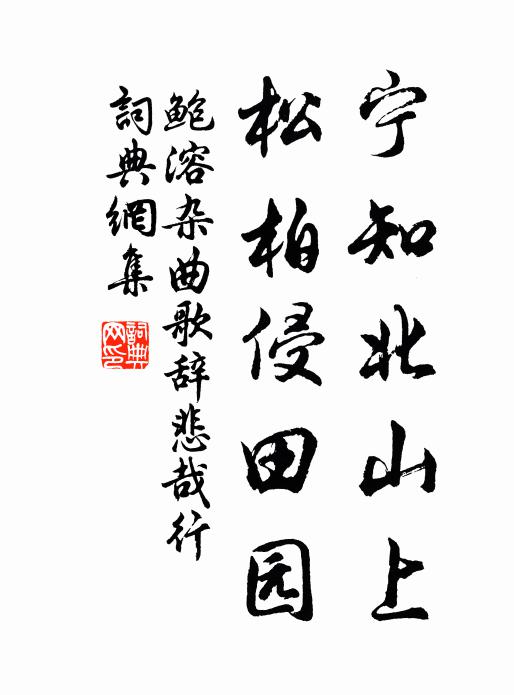 宁知北山上
松柏侵田园
鲍溶杂曲歌辞悲哉行
詞典網集
詞典网印